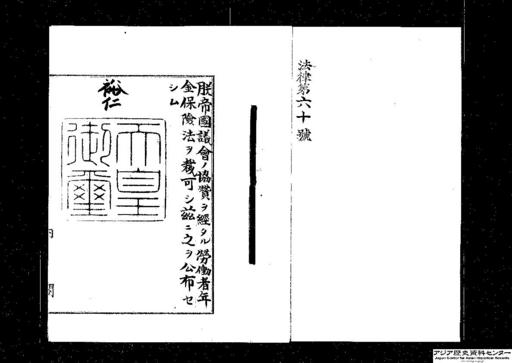 法律第六十號
朕帝國議會ノ協贊ヲ經タル勞働者年
金保險法ヲ裁可シ茲ニ之ヲ公布セ
シム
裕仁
天皇
御璽
内
閣
アジア歴史資料センター
Japan Center for Asian Historical Records